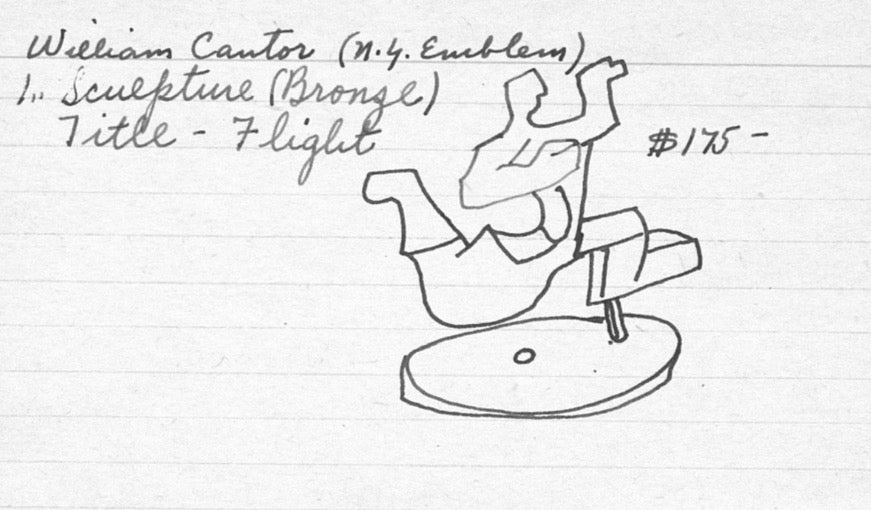 William Cantor (N.Y. Emblem)
1. Sculpture (Bronze)
Title - Flight
$175 -